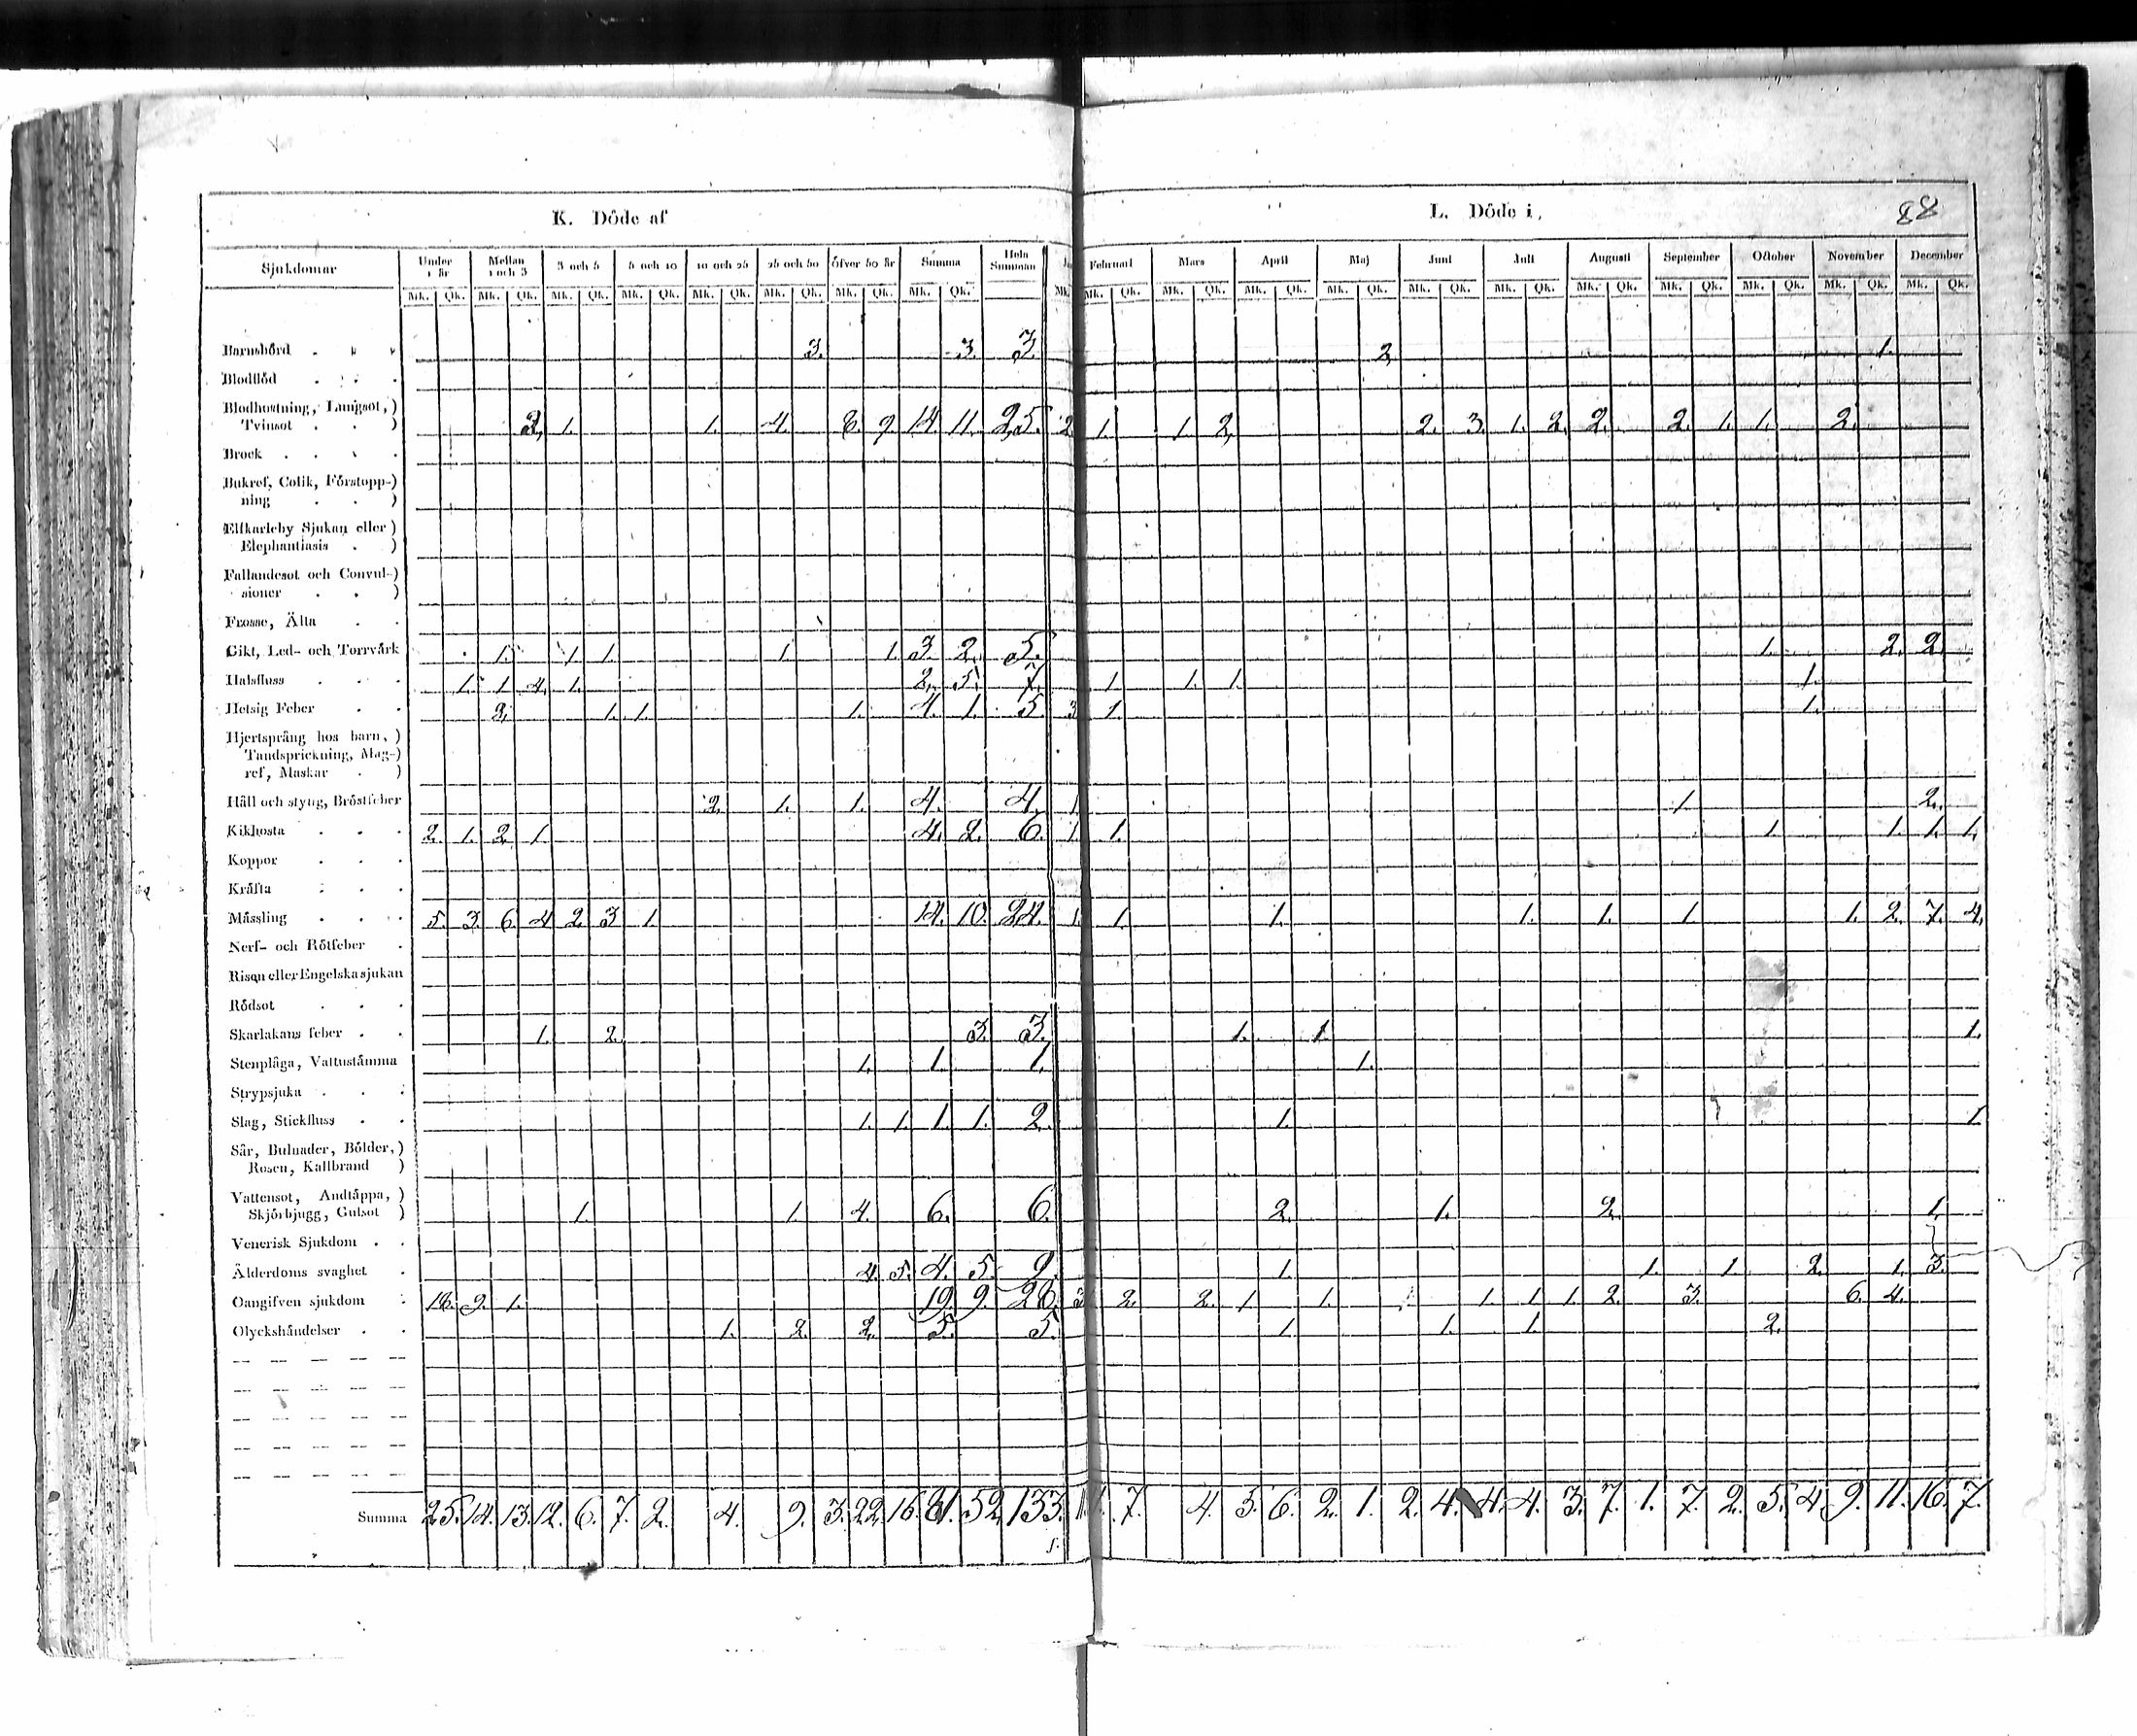 88
K. Döde af
L. Döde i
Sjukdomar Under 1 år Mellan 1 och 3 3 och 5 5 och 10 10 och 25 25 och 50 öfver 50 år Summa Hela Summan Februari Mars April Maj Juni Juli Augusti September October November December
Mk. Qk. Mk. Qk. Mk. Qk. Mk. Qk. Mk. Qk. Mk. Qk. Mk. Qk. Mk. Qk. Mk. Mk. Qk. Mk. Qk. Mk. Qk. Mk. Qk. Mk. Qk. Mk. Qk. Mk. Qk. Mk. Qk. Mk. Qk. Mk. Qk. Mk. Qk.
Barnsbörd 3. 3 3. 2 1.
Blodflöd
Blodhostning, Lungsot,)
Tvinsot ) 2, 1. 1. 4. 8. 9. 14. 11. 25. 2 1. 1. 2, 2. 3. 1. 2. 2. 2. 1. 1. 2.
Brock
Bukref, Colik, Förstopp-)
ning )
Elfkarleby Sjukan eller)
Elephantiasis )
Fallandesot och Convul-)
sioner )
Frosse, Älta
Gikt, Led- och Torrvärk 1. 1 1. 1 1. 3. 2. 5. 1. 2. 2.
Halsfluss 1. 1 4. 1. 2. 5. 7. 1 1. 1. 1.
Hetsig Feber 2, 1. 1. 1. 4. 1. 5 3 1. 1.
Hjertsprång hos barn,)
Tandsprickning, Mag-)
ref, Maskar )
Håll och styng, Bröstfeber 2. 1. 1. 4. 4. 1 1 2.
Kikhosta 2. 1. 2. 1 4. 2. 6. 1. 1. 1 1. 1. 1.
Koppor
Kräfta
Mässling 5. 3. 6. 4 2. 3 1. 14. 10. 24. 1. 1. 1. 1. 1. 1. 1. 2. 7. 4.
Nerf- och Rötfeber
Risen eller Engelska sjukan
Rödsot
Skarlakans feber 1. 2. 3. 3. 1. 1. 1.
Stenplåga, Vattustämma 1. 1. 1. 1.
Strypsjuka
Slag, Stickfluss 1. 1. 1. 1. 2. 1. 1
Sår, Bulnader, Bölder,)
Rosen, Kallbrand )
Vattensot, Andtäppa, )
Skjörbjugg, Gulsot ) 1. 1. 4. 6. 6. 2. 1. 2. 1.
Venerisk Sjukdom
Ålderdoms svaghet 4. 5. 4. 5. 9. 1. 1. 1. 2. 1. 3.
Oangifven sjukdom 18. 9. 1. 19. 9. 28. 3 2. 2. 1 1. 1. 1. 1. 2. 3. 6. 4.
Olyckshändelser 1. 2. 2. 5. 5. 1. 1. 1. 2.
Summa 25. 14. 13. 12. 6. 7. 2. 4. 9. 3. 22. 16. 81. 52 133. 11. 1. 7. 4. 5. 6. 2. 1. 2. 4. 4. 4. 3. 7. 1. 7. 2. 5. 4 9. 11. 16. 7.